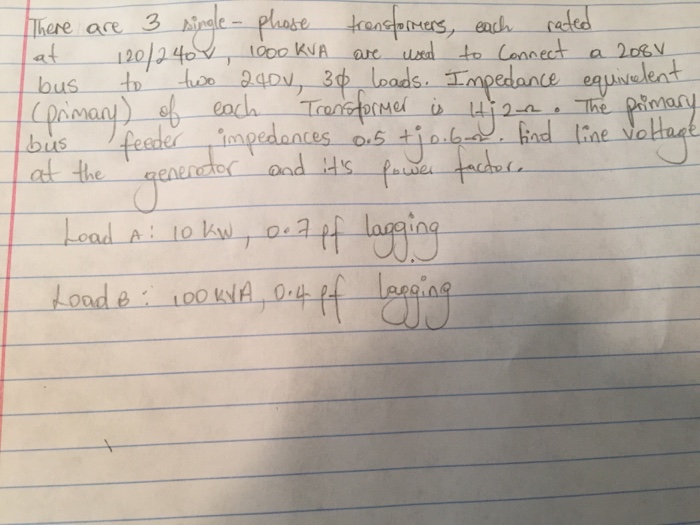 There are 3 single - phase transformers, each rated
at 120/240V, 1000 KVA are used to Connect a 208V
bus to two 240V, 3ϕ loads. Impedance equivalent
(primary) of each Transformer is 1+j2Ω. The primary
bus feeder impedances 0.5 +j0.6Ω. find line voltage
at the generator and it's power factor.
Load A: 10 KW, 0.7 pf lagging
Load B: 100 KVA, 0.4 pf lagging